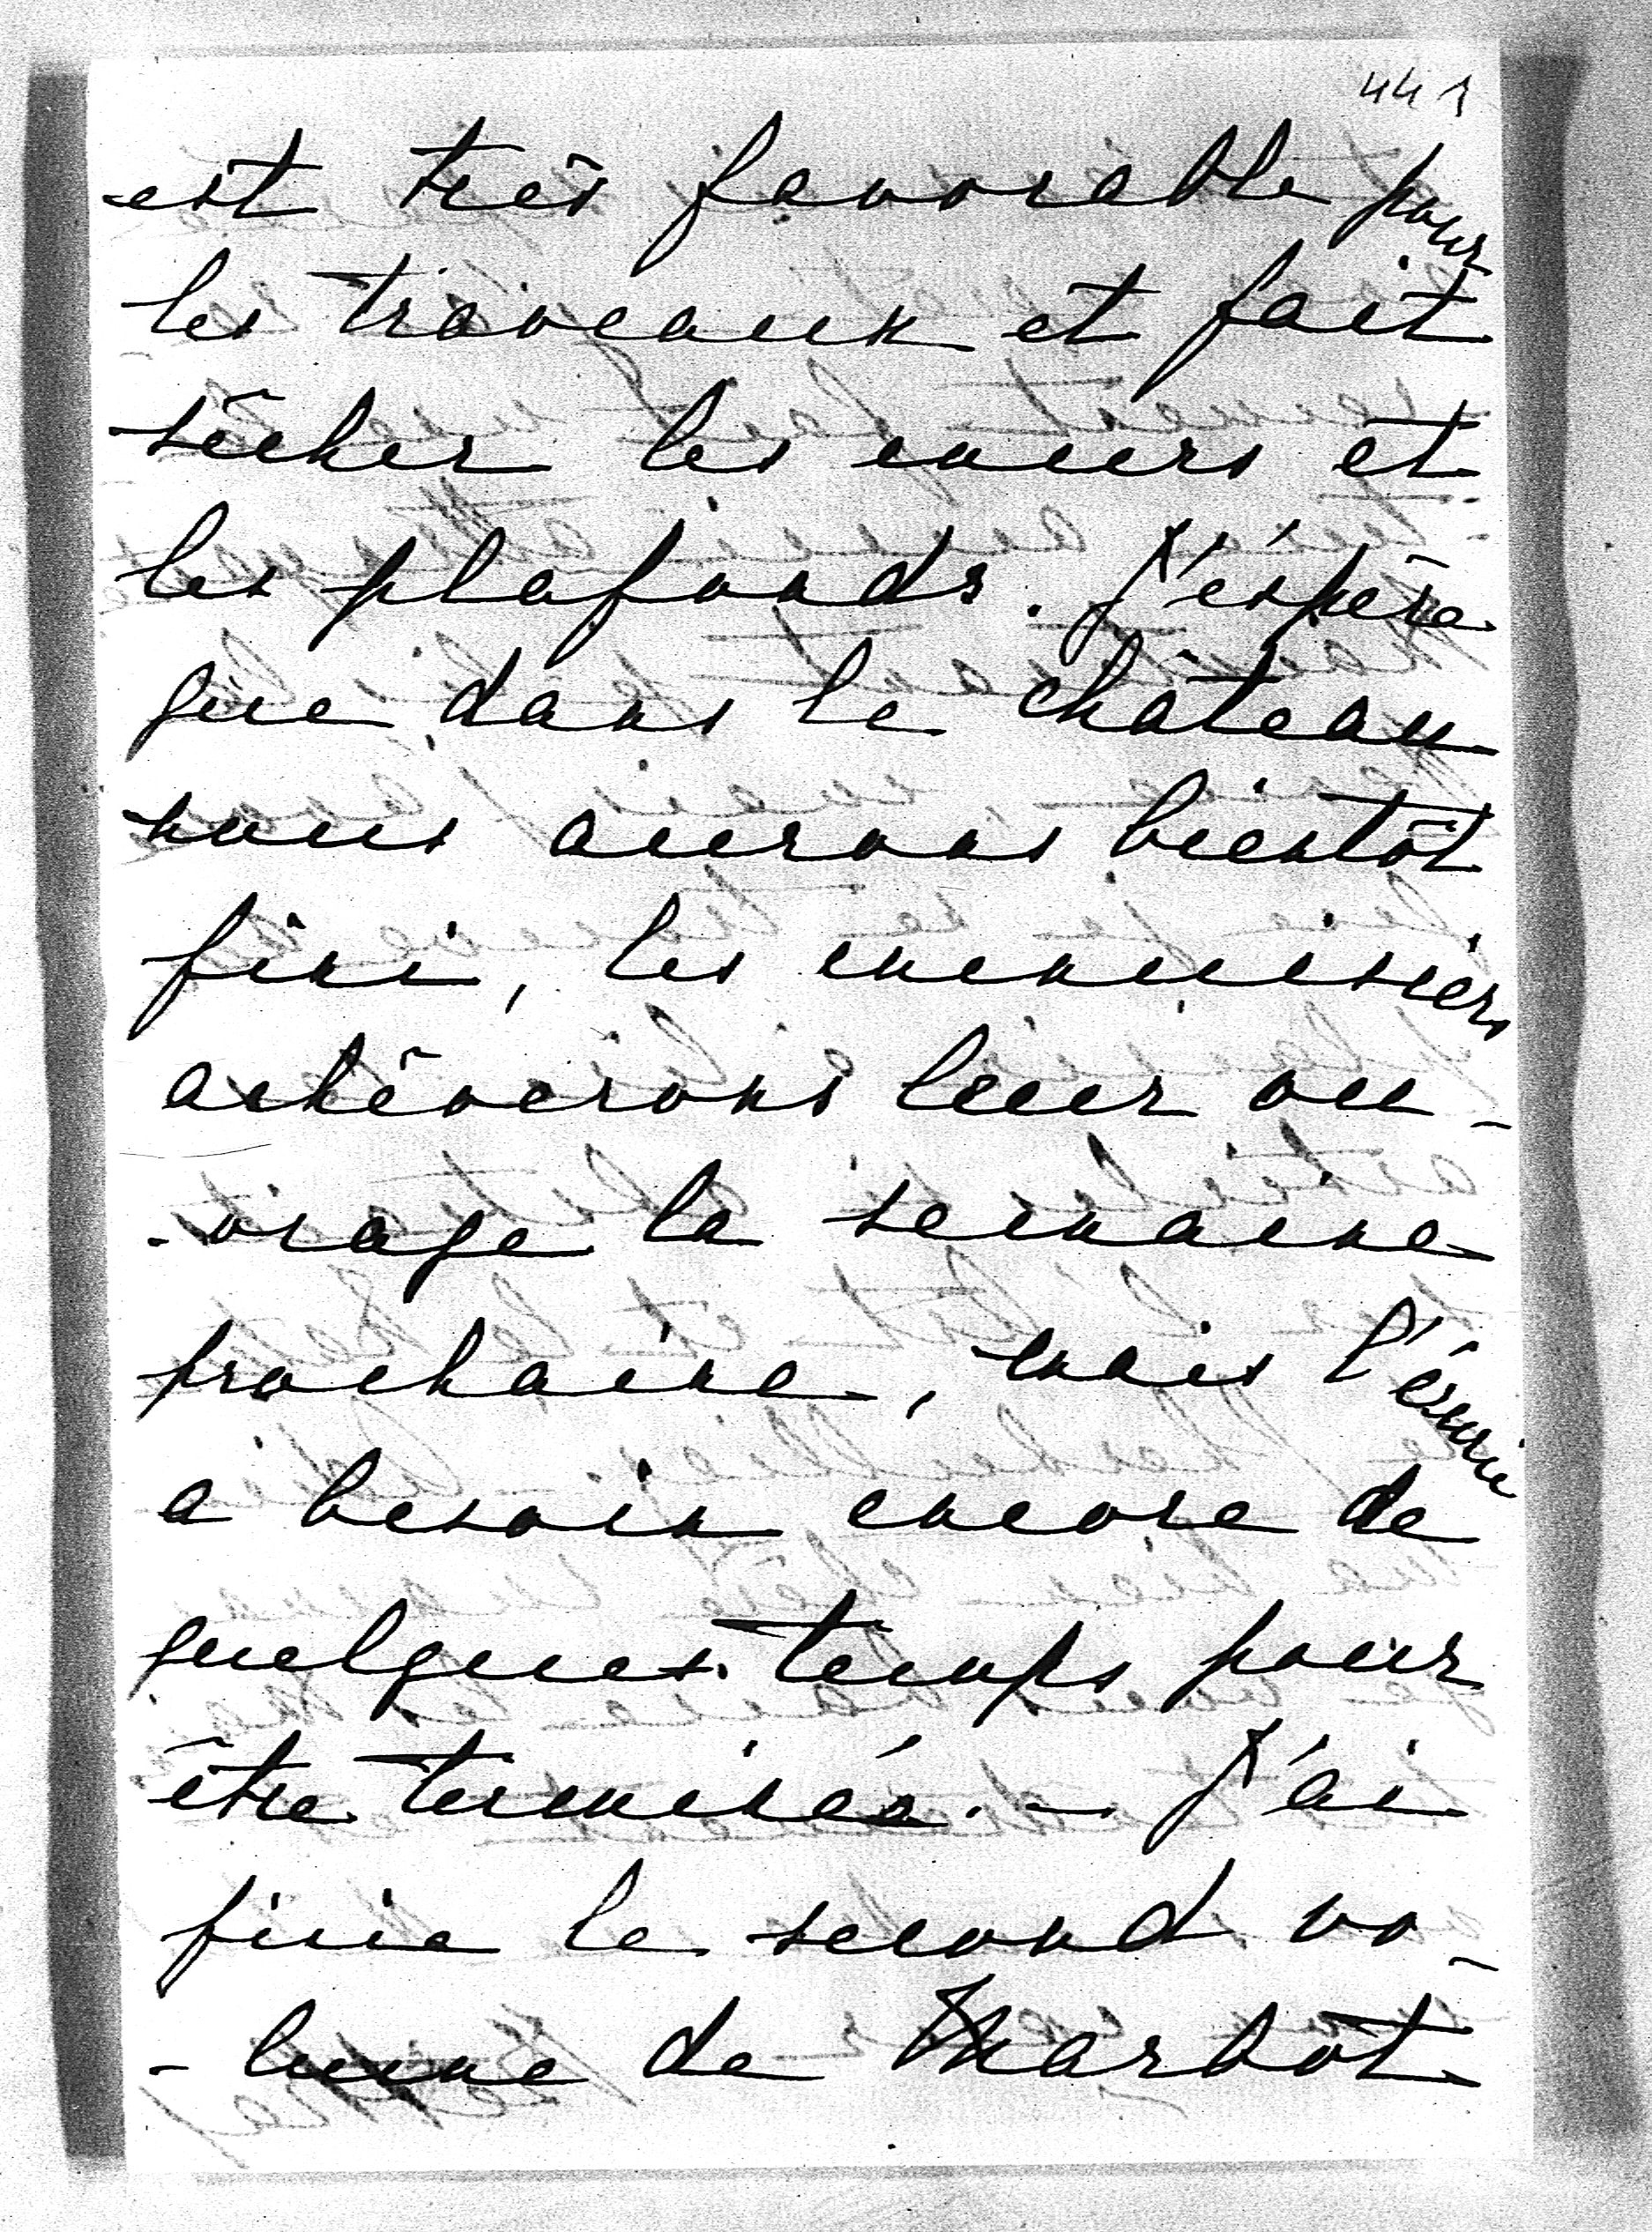 441
est très favorable pour
les traveaux et fait
sècher les murs et
les plafonds. J'éspère
que dans le château
nous aurons bientôt
fini, les menuisiers
achêverons leur ou-
-vrage la semaine
prochaine, mais l'érurie
a besoin encore de
quelques temps pour
être terminée. — J'ai
finie le second vo-
-lume de Marbôt